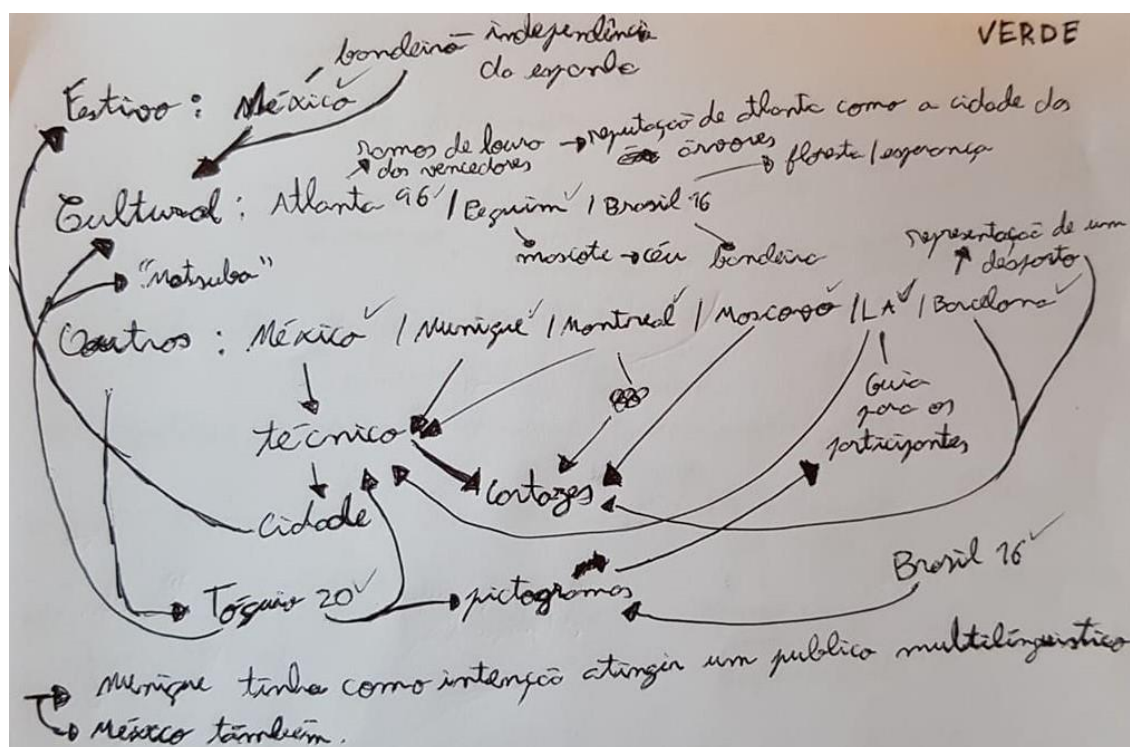 VERDE
bandeira - independência
da espanha
Festivo : México
ramos de louro
dos vencedores
reputação de Atlanta como a cidade das
árvores
floresta / esperança
Cultural : Atlanta 96 / Pequim / Brasil 16
mascote céu bandeira
representação de um
desporto
"Matsuba"
Outros : México / Munique / Montreal / Moscovo / LA / Barcelona
Guia
para os
participantes
técnico
cartazes
cidade
Brasil 16
Tóquio 20 pictogramas
Munique tinha como intenção atingir um publico multilinguistico
México também.